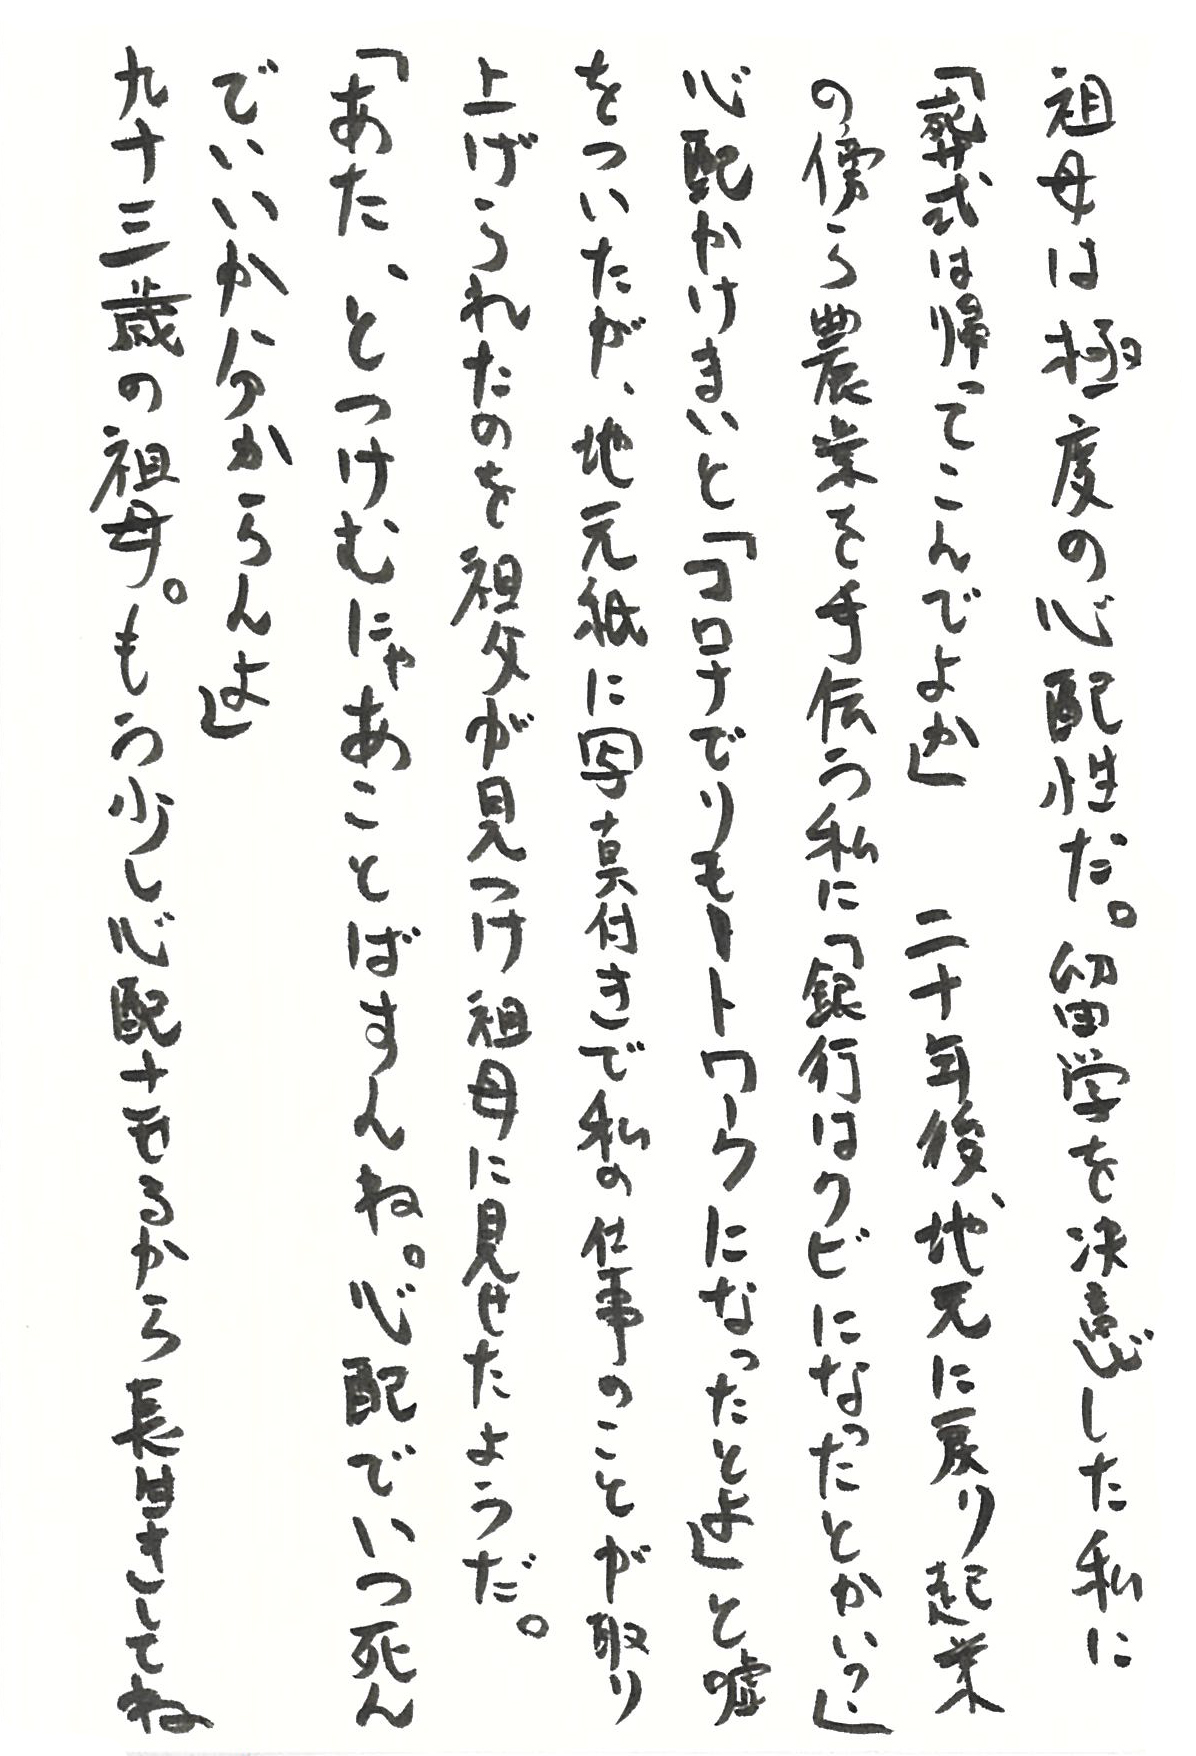 祖母は極度の心配性だ。留学を決意した私に
「葬式は帰ってこんでよか」　二十年後、地元に戻り起業
の傍ら農業を手伝う私に「銀行はクビになったとかい？」
心配かけまいと「コロナでリモートワークになったとよ」と嘘
をついたが、地元紙に写真付きで私の仕事のことが取り
上げられたのを祖父が見つけ祖母に見せたようだ。
「あた、とつけむにゃあことばすんね。心配でいつ死ん
でいいか分からんよ」
九十三歳の祖母。もう少し心配させるから長生きしてね